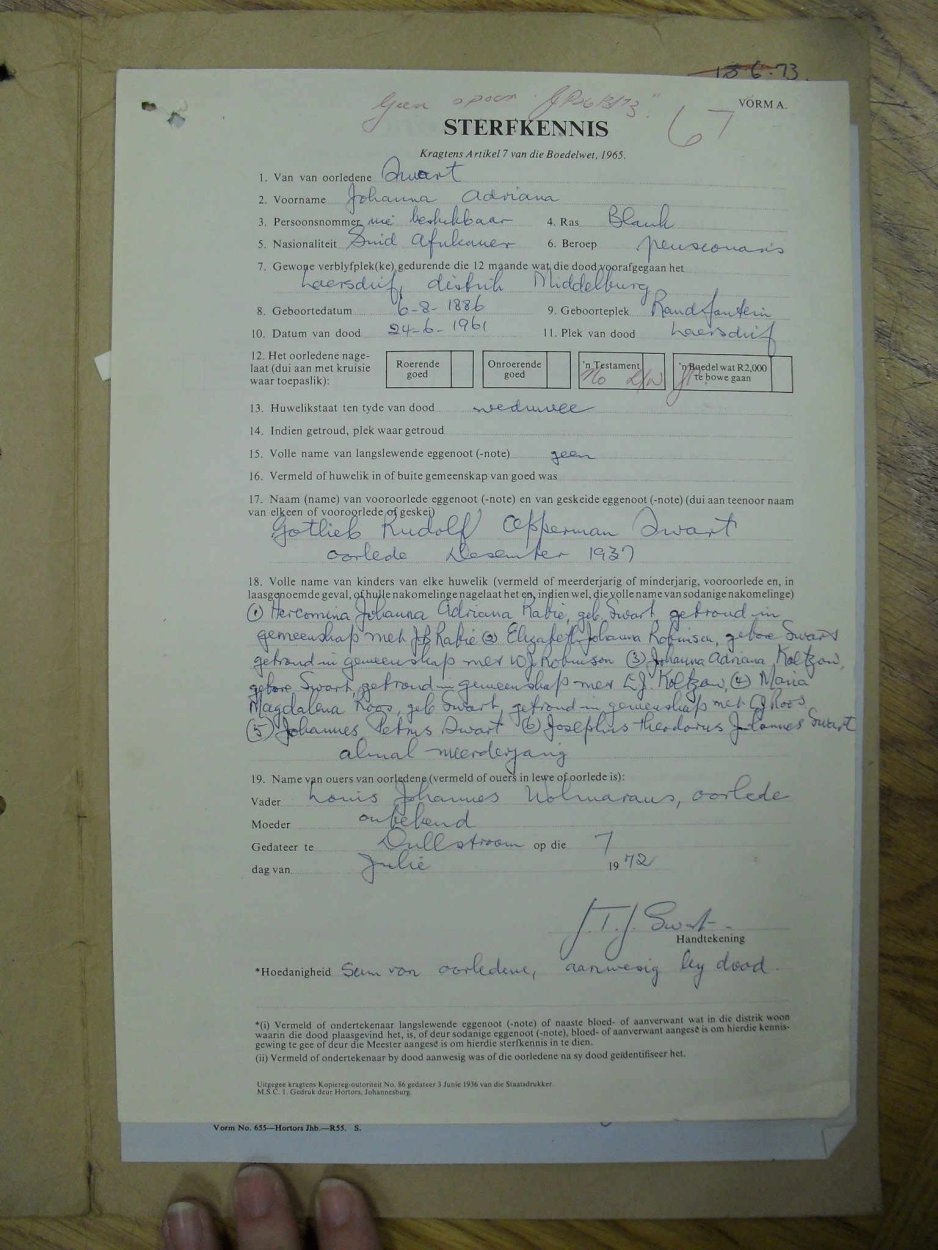 15-6-73
Geen spoor
67
VORM A.
STERFKENNIS
Kragtens Artikel 7 van die Boedelwet, 1965.
1. Van van oorledene Swart
2. Voorname Johanna Adriana
3. Persoonsnommer nie beskikbaar 4. Ras Blank
5. Nasionaliteit Suid Afrikaner 6. Beroep pensionaris
7. Gewone verblyfplek(ke) gedurende die 12 maande wat die dood voorafgegaan het
Laersdrif, distrik Middelburg
8. Geboortedatum 6-8-1886 9. Geboorteplek Randfontein
10. Datum van dood 24-6-1961 11. Plek van dood Laersdrif
12. Het oorledene nage-
laat (dui aan met kruisie
waar toepaslik):
Roerende
goed
Onroerende
goed
'n Testament
No
'n Boedel wat R2,000
te bowe gaan
13. Huwelikstaat ten tyde van dood weduwee
14. Indien getroud, plek waar getroud
15. Volle name van langslewende eggenoot (-note) geen
16. Vermeld of huwelik in of buite gemeenskap van goed was
17. Naam (name) van vooroorlede eggenoot (-note) en van geskeide eggenoot (-note) (dui aan teenoor naam
van elkeen of vooroorlede of geskei)
Gotlieb Rudolf Opperman Swart
oorlede Desember 1937
18. Volle name van kinders van elke huwelik (vermeld of meerderjarig of minderjarig, vooroorlede en, in
laasgenoemde geval, of hulle nakomelinge nagelaat het en, indien wel, die volle name van sodanige nakomelinge)
(1) Hercomina Johanna Adriana Rabie, geb. Swart, getroud in
gemeenskap met Rabie (2) Elizabeth Johanna Robinson, gebore Swart
getroud in gemeenskap met W J Robinson (3) Johanna Adriana Koltzow,
gebore Swart, getroud in gemeenskap met L.J. Koltzow, (4) Maria
Magdalena Roos, geb Swart, getroud in gemeenskap met Roos
(5) Johannes Petrus Swart (6) Josephus Theodorus Johannes Swart
almal meerderjarig
19. Name van ouers van oorledene (vermeld of ouers in lewe of oorlede is):
Vader Louis Johannes Wolmarans, oorlede
Moeder onbekend
Gedateer te Dullstroom op die 7
dag van Julie 1972
J.T.J. Swart
Handtekening
*Hoedanigheid Seun van oorledene, aanwesig by dood.
*(i) Vermeld of ondertekenaar langslewende eggenoot (-note) of naaste bloed- of aanverwant wat in die distrik woon
waarin die dood plaasgevind het, is, of deur sodanige eggenoot (-note), bloed- of aanverwant aangesê is om hierdie kennis-
gewing te gee of deur die Meester aangesê is om hierdie sterfkennis in te dien.
(ii) Vermeld of ondertekenaar by dood aanwesig was of die oorledene na sy dood geïdentifiseer het.
Uitgegee kragtens Kopiereg-outoriteit No. 86 gedateer 3 Junie 1936 van die Staatsdrukker.
M.S.C. 1. Gedruk deur Hortors, Johannesburg.
Vorm No. 655—Hortors Jhb.—R55. S.